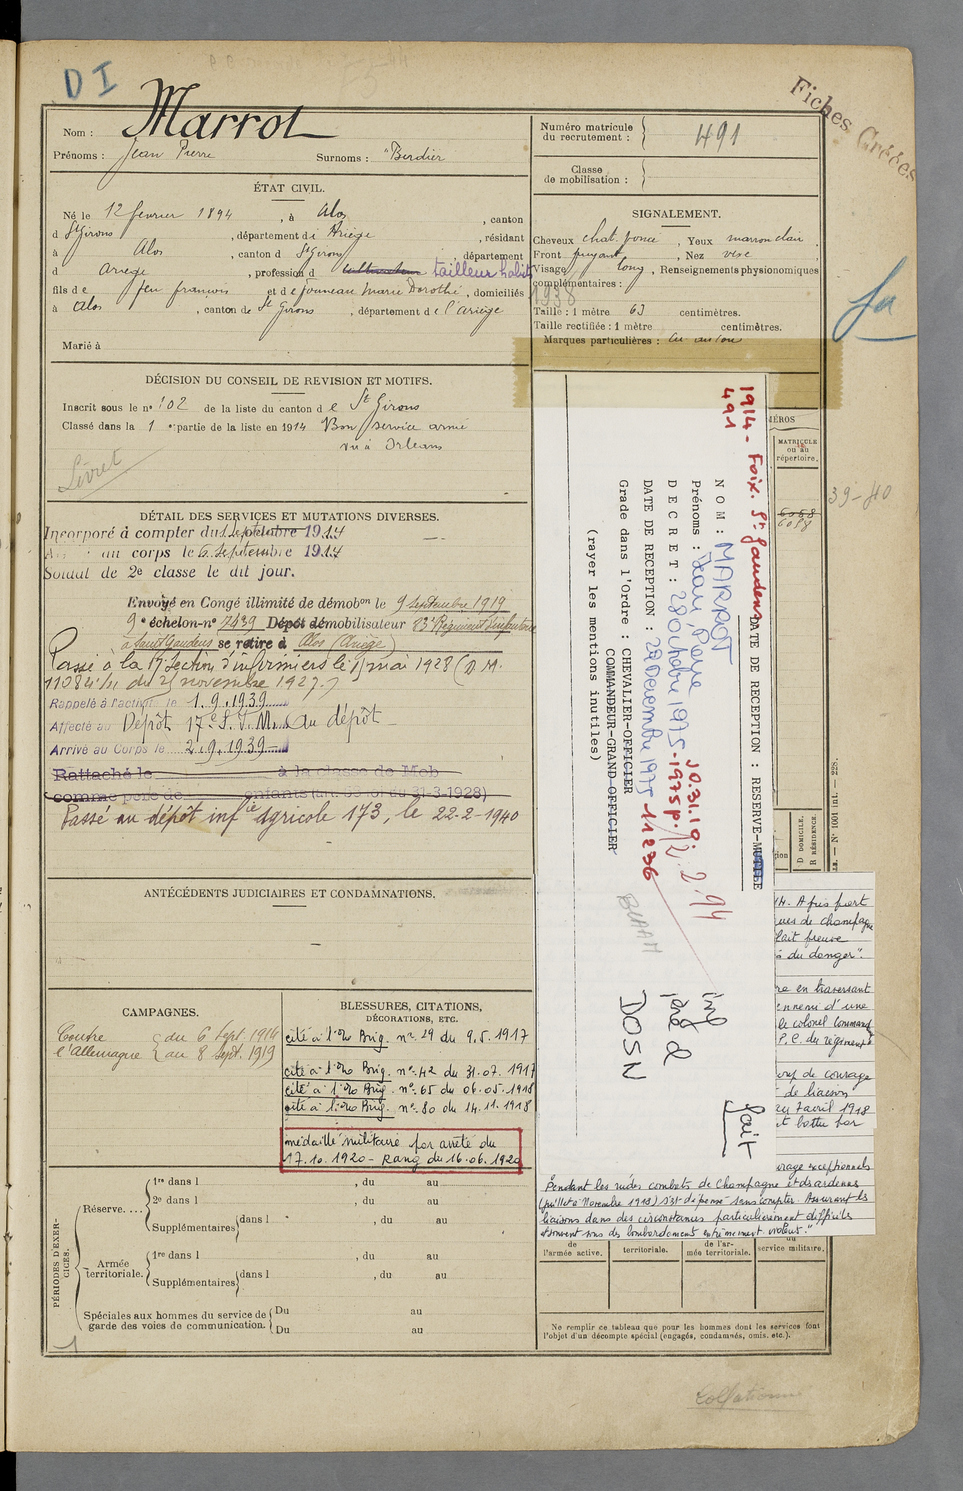 D I
Fiches Créées
Nom : Marrot
Prénoms : Jean Pierre Surnoms : "Berdier
Numéro matricule
du recrutement : 491
Classe
de mobilisation :
ÉTAT CIVIL.
Né le 12 fevrier 1894, à Alos, canton
d St Girons, département d Ariège, résidant
à Alos, canton d St Girons, département
d ariege, profession d tailleur habits
fils de feu francois et de jouneau Marie Dorothé, domiciliés
à alos, canton de St Girons, département de l'ariége
Marié à
SIGNALEMENT.
Cheveux chat. foncé, Yeux marron clair,
Front fuyant, Nez
Visage long, Renseignements physionomiques
complémentaires :
1938
Taille : 1 mètre 63 centimètres.
Taille rectifiée : 1 mètre centimètres.
Marques particulières :
DÉCISION DU CONSEIL DE REVISION ET MOTIFS.
Inscrit sous le n° 102 de la liste du canton de St Girons
Classé dans la 1 e partie de la liste en 1914 Bon service armé
vu à Orleans
Livret
DÉTAIL DES SERVICES ET MUTATIONS DIVERSES.
Incorporé à compter du 1 septembre 1914
au corps le 6 septembre 1914
Soldat de 2e classe le dit jour.
Envoyé en Congé illimité de démobon le 9 septembre 1919
9e échelon-n° 2439 Dépôt démobilisateur 83e Régiment d'infanterie
à Saint Gaudens se retire à Alos (Ariège)
Passé à la 17e Section d'infirmiers le 1 mai 1928 (D.M.
11084 du 25 novembre 1927.)
Rappelé à l'activité le 1.9.1939
Affecté au Dépôt 17e S.I.M. au dépôt
Arrivé au Corps le 2.9.1939
Rattaché le à la classe de Mob
comme père de enfants (art. 58 loi du 31-3-1928)
Passé au dépôt infie Agricole 173, le 22-2-1940
ANTÉCÉDENTS JUDICIAIRES ET CONDAMNATIONS.
CAMPAGNES.
Contre du 6 Sept. 1914
l'Allemagne au 8 Sept. 1919
BLESSURES, CITATIONS,
DÉCORATIONS, ETC.
cité à l'Ord Brig. n° 29 du 9.5.1917
cité à l'Ord Brig. n° 42 du 31.07.1917
cité à l'Ord Brig. n° 65 du 06.05.1918
cité à l'Ord Brig. n° 80 du 14.11.1918
médaille militaire par arrêté du
17.10.1920 - Rang du 16.06.1920
PÉRIODES D'EXERCICES.
Réserve....
1re dans l , du au
2e dans l , du au
Supplémentaires dans l , du au
Armée
territoriale.
1re dans l , du au
Supplémentaires dans l , du au
Spéciales aux hommes du service de
garde des voies de communication.
Du au
Du au
1914 - Foix. St Gaudens
491
DATE DE RECEPTION : RESERVE-
NOM : MARROT
Prénoms : Jean, Pierre
DECRET : 28 Octobre 1975 - J.O. 31.10.1975 p. 11236
DATE DE RECEPTION : 29 Decembre 1975
Grade dans l'Ordre : CHEVALIER-OFFICIER
COMMANDEUR-GRAND OFFICIER
(rayer les mentions inutiles)
12.2.94
DOSN
fait
NÉROS
MATRICULE
ou au
répertoire.
6088
39-40
D DOMICILE.
R RÉSIDENCE.
N° 1001 int. — 228.
14. Après
de champagne
fait preuve
du danger".
en traversant
ennemi d'une
le colonel Command
P.C. du régiment
de courage
de liaison
7 avril 1918
battu par
courage exceptionnels
Pendant les rudes combats de Champagne et des ardenes
(juillet à Novembre 1918) s'est dépensé sans compter. Assurant les
liaisons dans des circonstances particulièrement difficiles
et souvent sous des bombardements extrêmement violents."
de
l'armée active.
territoriale.
de l'ar-
mée territoriale.
du
service militaire.
Ne remplir ce tableau que pour les hommes dont les services font
l'objet d'un décompte spécial (engagés, condamnés, omis, etc.).
Collationné